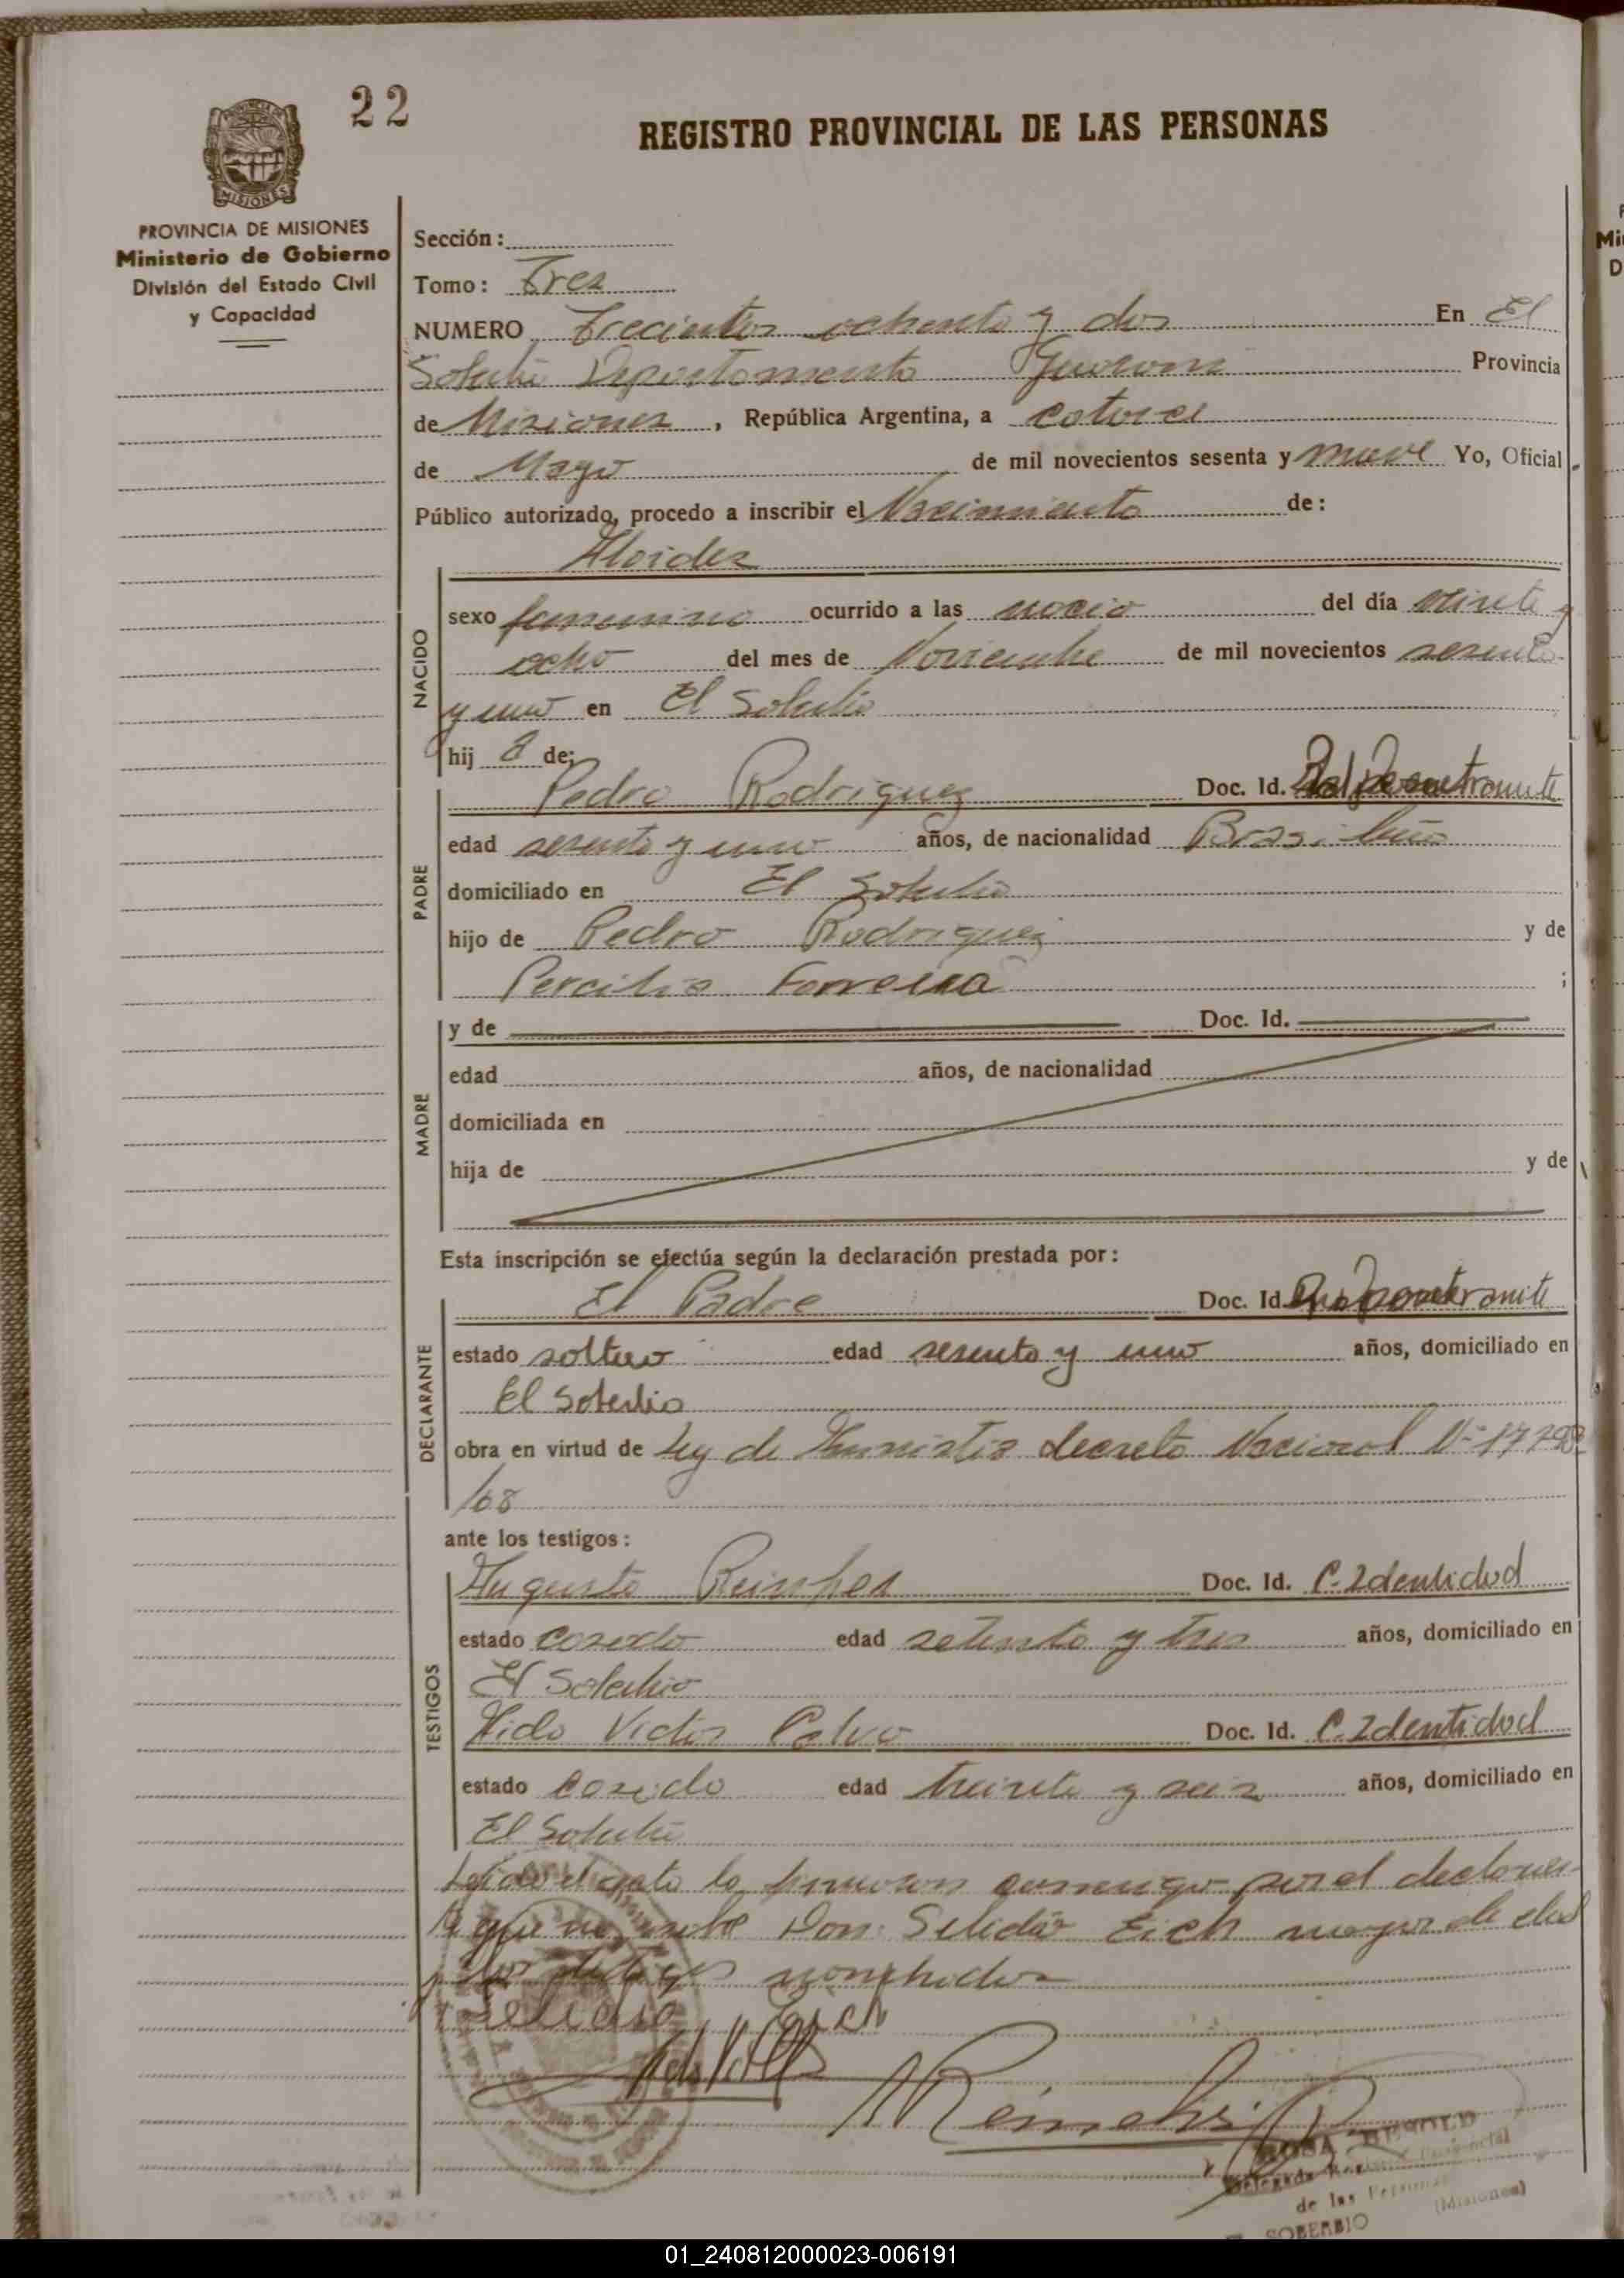 22
REGISTRO PROVINCIAL DE LAS PERSONAS
MISIONES
PROVINCIA DE MISIONES
Ministerio de Gobierno
División del Estado Civil
y Capacidad
Sección:
Tomo: Tres
NUMERO Trecientos ochenta y dos En El
Soberbio Departamento Guarani Provincia
de Misiones, República Argentina, a catorce
de Mayo de mil novecientos sesenta y nueve Yo, Oficial
Público autorizado, procedo a inscribir el Nacimiento de:
Alcides
NACIDO
sexo femenino ocurrido a las del día veinte y
ocho del mes de Noviembre de mil novecientos sesenta
y uno en El Soberbio
hij de:
PADRE
Pedro Rodriguez Doc. Id. tramite
edad sesenta y uno años, de nacionalidad Brasileña
domiciliado en El Soberbio
hijo de Pedro Rodriguez y de
Percilia Ferreira ;
MADRE
y de Doc. Id.
edad años, de nacionalidad
domiciliada en
hija de y de
Esta inscripción se efectúa según la declaración prestada por:
DECLARANTE
El Padre Doc. Id. tramite
estado soltero edad sesenta y uno años, domiciliado en
El Soberbio
obra en virtud de Ley de Amnistia decreto Nacional Nº
/68
ante los testigos:
TESTIGOS
Augusto Doc. Id. C. Identidad
estado casado edad setenta y tres años, domiciliado en
El Soberbio
Victor Calvo Doc. Id. C. Identidad
estado casado edad treinta y seis años, domiciliado en
El Soberbio
Leida el acta la firmaron conmigo por el declaran-
te que no Don Eich mayor de edad
y los testigos nombrados
Eich
Delegada
de las
(Misiones)
SOBERBIO
01_240812000023-006191